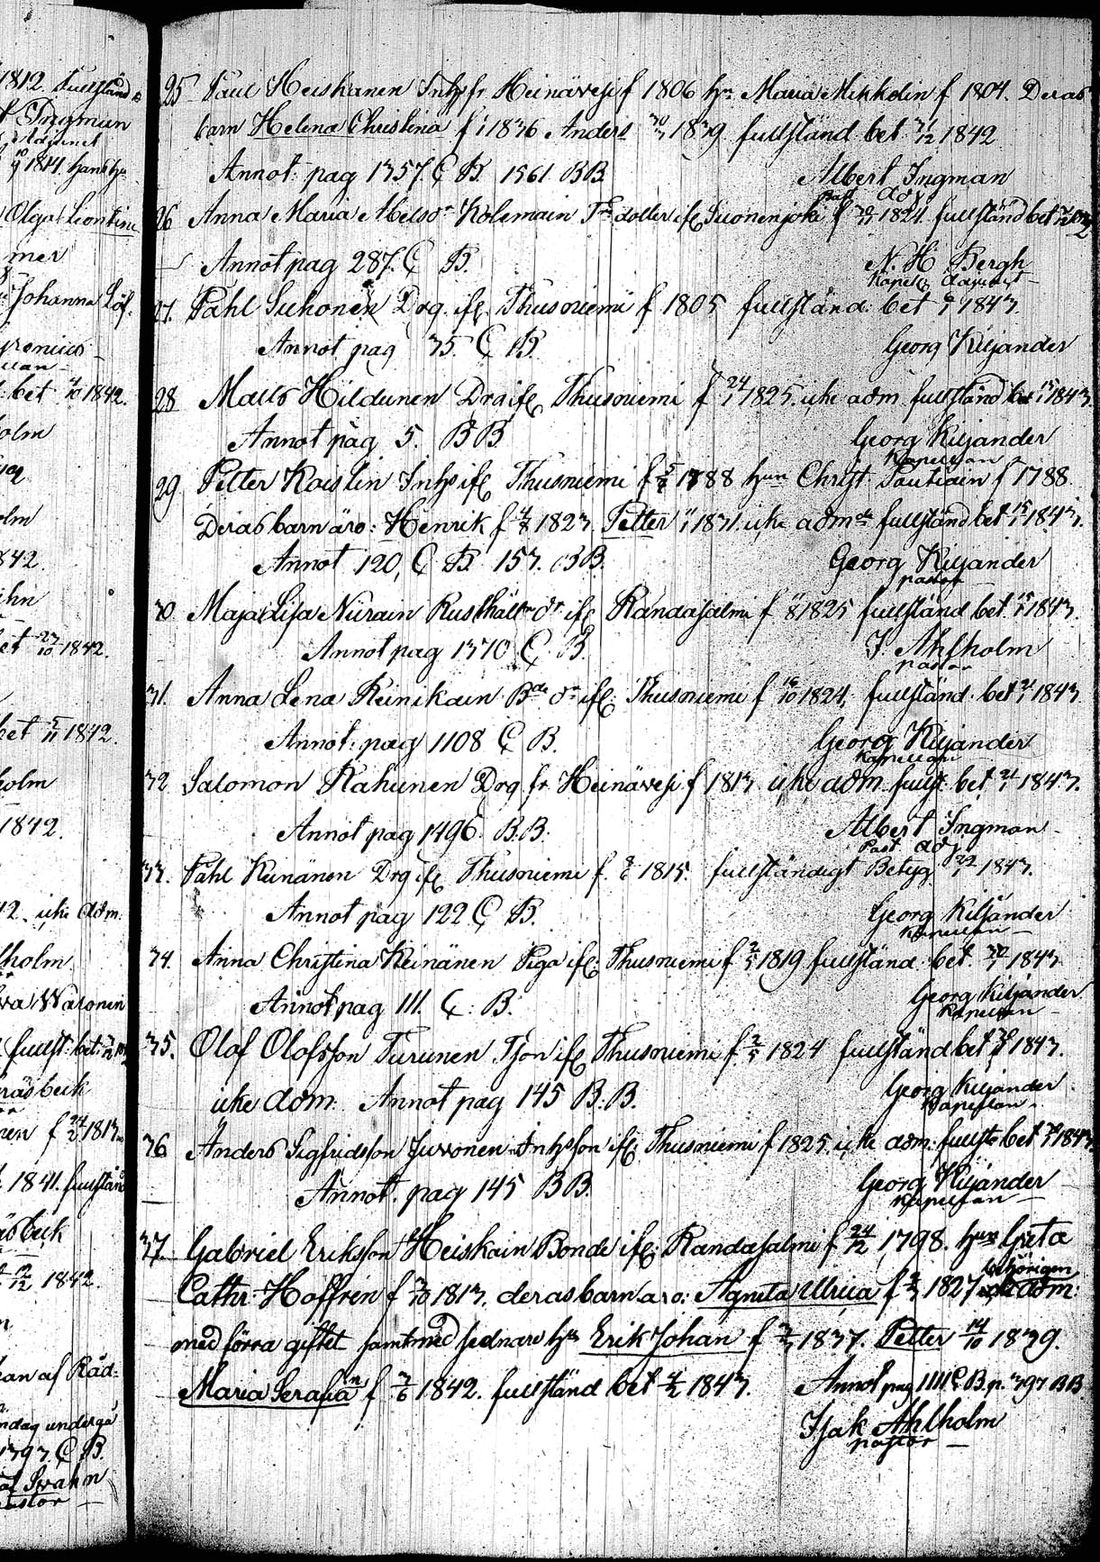 1812. fullständ
Ingman
Adjunct
1814. hans hu
Olga Leontine
mer
Johanna Löf.
bet 1842.
olm
olm
842.
ihn
et 23/10 1842.
bet 5/11 1842.
holm
1842.
12. icke adm.
lholm
wa Waronen
fullst: bet:
räsbeck
nen f 24/2 1813
1841. fullständ
äsbeck
12/12 1842.
an af Råd-
ndag undergå
1393 C B.
af Svahn
pastor
25 Paul Heiskanen Inhs fr Heinävesi f 1806 hu Maria Mikkolin f 1804. Deras
barn Helena Christina f 1836 Anders 30/3 1839. fullständ bet 31/12 1842
Annot: pag 1357. C B. 1561 BB. Albert Ingman
Past Adj.
26 Anna Maria Abelsdr Kolemain dotter ifr Suonenjoki f 1824. fullständ bet
Annot pag 287. C B. N. H Bergh
Kapels Adjunct
27. Påhl Suhonen Drg. ifr Thusniemi f 1805 fullständ: bet 1843.
Annot pag 35. C B. Georg Kiljander
28 Matts Hildunen Drg ifr Thusniemi f 24/1 1825. icke adm. fullständ bet 15/1 1843
Annot pag 5. BB Georg Kiljander
Kapellan
29 Petter Kaislin Inhs ifr Thusniemi f 5/2 1788 hun Christ. Pautiain f 1788
Deras barn äro: Henrik f 4/8 1823. Petter 1831. icke adm. fullständ bet 15/1 1843.
Annot 120, C B. 153. BB. Georg Kiljander
pastor
30 Maja Lisa Nurain Rusthåll dr ifr Randasalmi f 1825 fullständ bet. 1843.
Annot pag 1370 C. B. I Ahlholm
pastor
31. Anna Lena Reinikain Bde dr ifr Thusniemi f 16/10 1824, fullständ. bet 1843
Annot: pag 1108 C B. Georg Kiljander
Kapellan
32 Salomon Kahunen Drg fr Heinävesi f 1813 icke adm fullst: bet 21/1 1843.
Annot pag 1496. B.B. Albert Ingman
Past Adj
33. Påhl Keinänen Drg ifr Thusniemi f. 1815. fullständigt Betyg. 22/1 1843.
Annot pag 122 C B. Georg Kiljander
Kapellan
34. Anna Christina Keinänen Piga ifr Thusniemi f 2/5 1819 fullständ. bet 30/1 1843
Annot pag 111. C. B. Georg Kiljander
Kapellan
35. Olof Olofsson Turunen Tson ifr Thusniemi f. 2/5 1824 fullständ bet 30/1 1843.
icke adm. Annot pag 145 B.B. Georg Kiljander
Kapellan
36 Anders Sigfridsson Juvonen Inhsson ifr Thusniemi f 1825. icke adm: fullst bet 1843
Annot. pag 145 BB. Georg Kiljander
Kapellan
37 Gabriel Eriksson Heiskain Bonde ifr. Randasalmi f 24/12 1798. hun Greta
Cathr. Hoffren f 7/10 1813. deras barn äro: Agneta Ulrica f 2/3 1827 behörigen adm.
med förra giftet samt med sednare hu Erik Johan f 1837. Petter 14/10 1839.
Maria Serafia f 3/6 1842. fullständ bet 4/2 1843. Annot pag 1111 C B. p. 393 BB
Isak Ahlholm
pastor